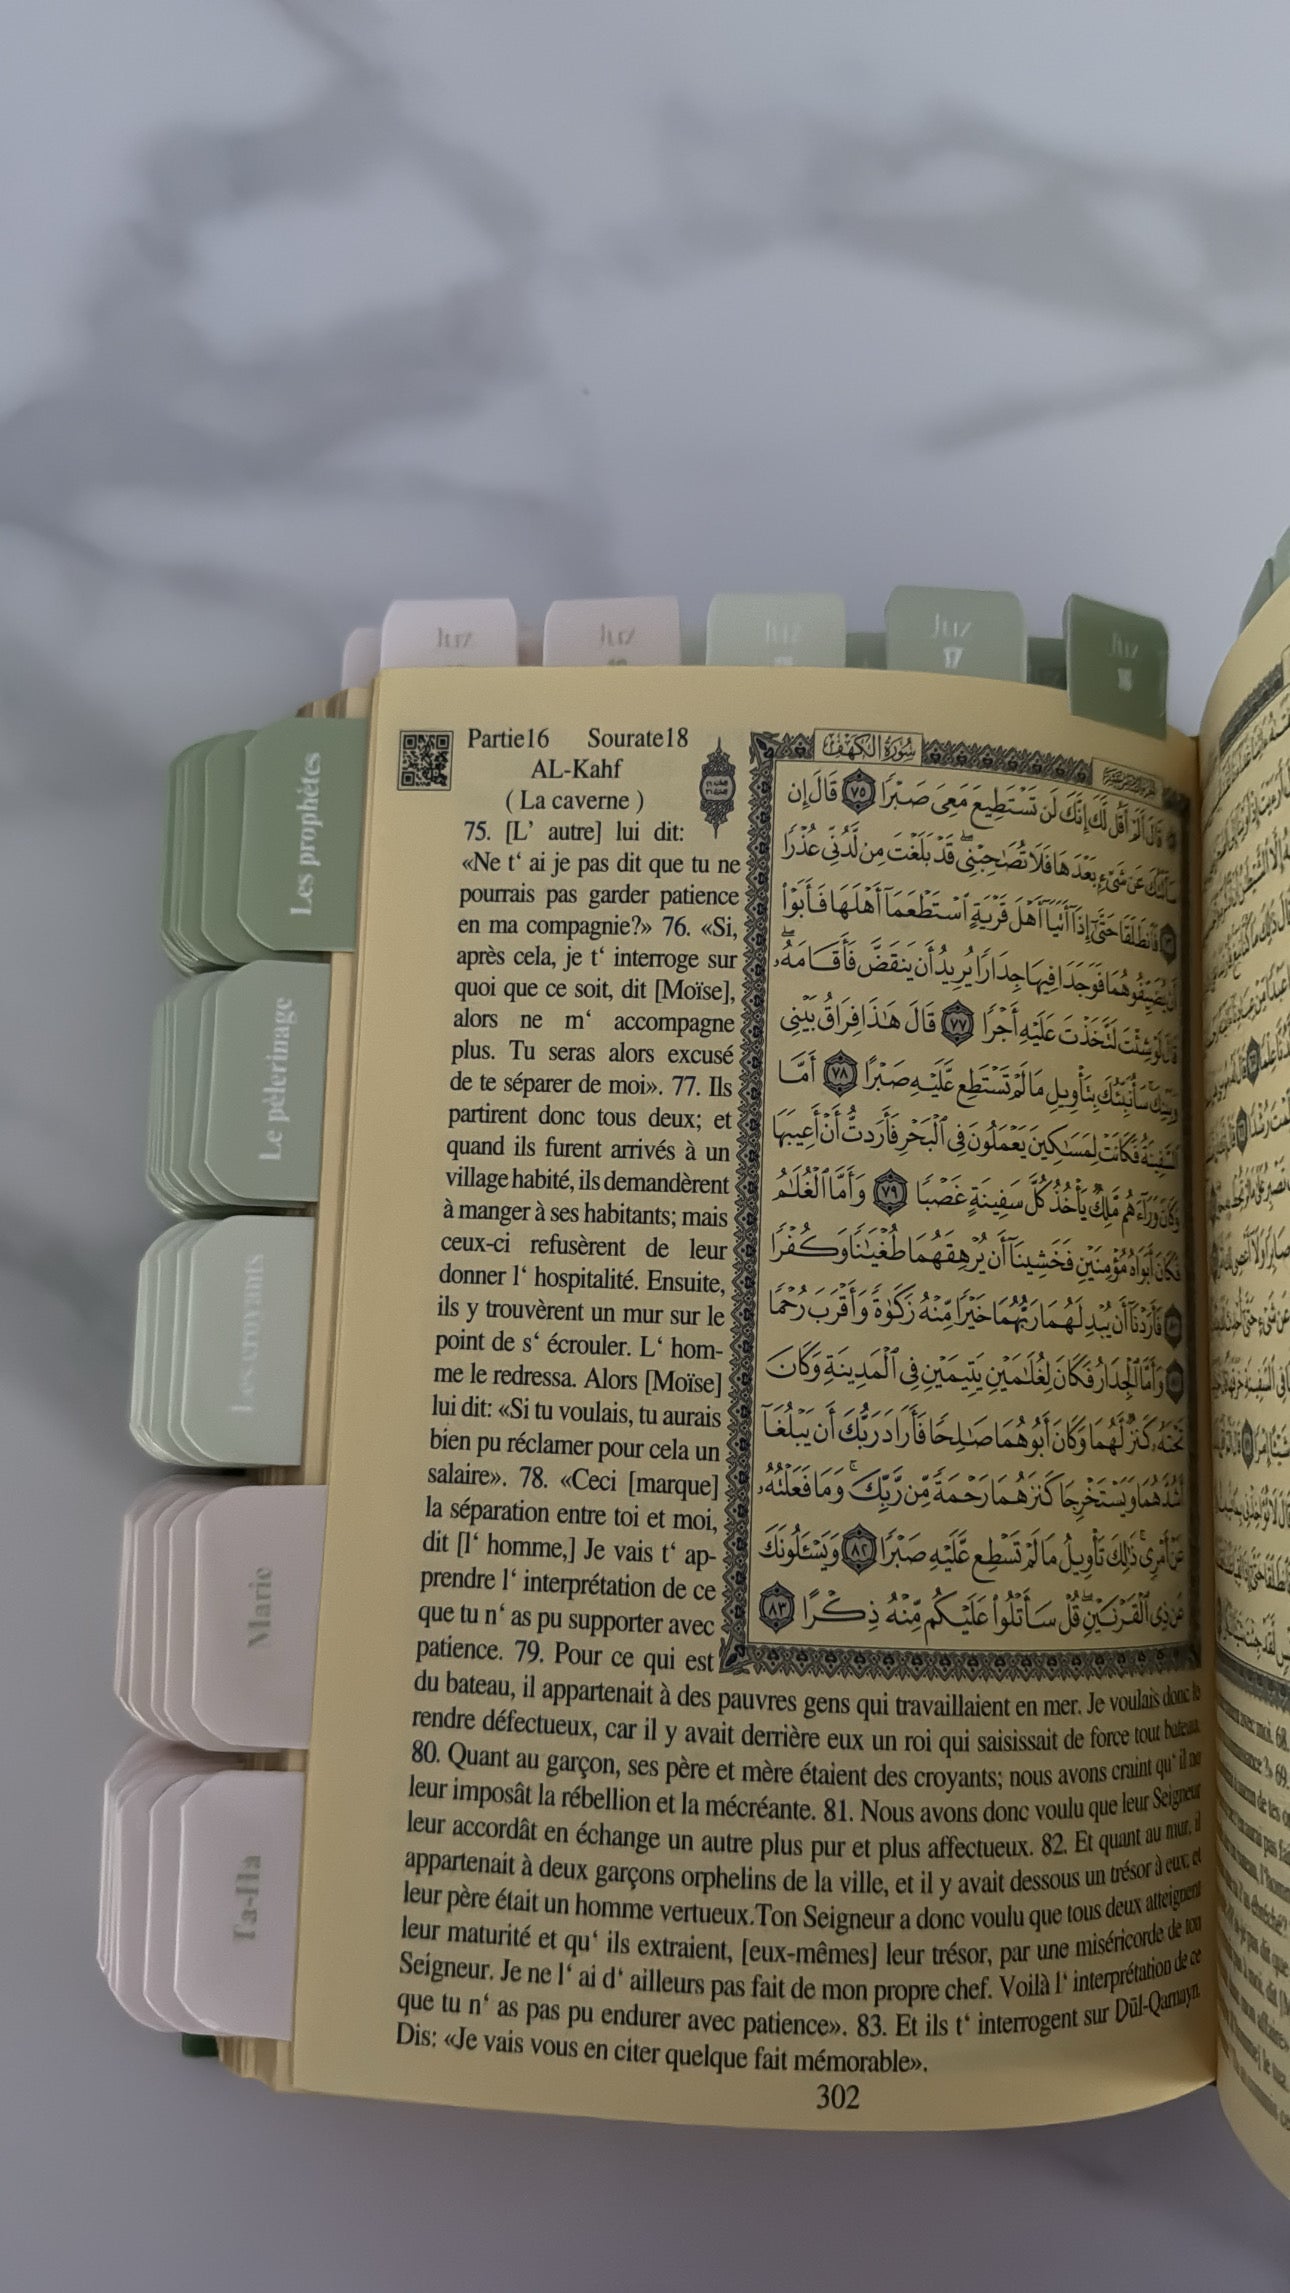 Juz
Juz
Juz
Juz
17
Juz
Les prophètes
Le pèlerinage
Les croyants
Marie
Ta-Ha
Partie16 Sourate18
AL-Kahf
( La caverne )
75. [L’ autre] lui dit:
«Ne t‘ ai je pas dit que tu ne
pourrais pas garder patience
en ma compagnie?» 76. «Si,
après cela, je t‘ interroge sur
quoi que ce soit, dit [Moïse],
alors ne m‘ accompagne
plus. Tu seras alors excusé
de te séparer de moi». 77. Ils
partirent donc tous deux; et
quand ils furent arrivés à un
village habité, ils demandèrent
à manger à ses habitants; mais
ceux-ci refusèrent de leur
donner l‘ hospitalité. Ensuite,
ils y trouvèrent un mur sur le
point de s‘ écrouler. L‘ hom-
me le redressa. Alors [Moïse]
lui dit: «Si tu voulais, tu aurais
bien pu réclamer pour cela un
salaire». 78. «Ceci [marque]
la séparation entre toi et moi,
dit [l‘ homme,] Je vais t‘ ap-
prendre l‘ interprétation de ce
que tu n‘ as pu supporter avec
patience. 79. Pour ce qui est
du bateau, il appartenait à des pauvres gens qui travaillaient en mer. Je voulais donc le
rendre défectueux, car il y avait derrière eux un roi qui saisissait de force tout bateau.
80. Quant au garçon, ses père et mère étaient des croyants; nous avons craint qu‘ il ne
leur imposât la rébellion et la mécréante. 81. Nous avons donc voulu que leur Seigneur
leur accordât en échange un autre plus pur et plus affectueux. 82. Et quant au mur, il
appartenait à deux garçons orphelins de la ville, et il y avait dessous un trésor à eux; et
leur père était un homme vertueux.Ton Seigneur a donc voulu que tous deux atteignent
leur maturité et qu‘ ils extraient, [eux-mêmes] leur trésor, par une miséricorde de ton
Seigneur. Je ne l‘ ai d‘ ailleurs pas fait de mon propre chef. Voilà l‘ interprétation de ce
que tu n‘ as pas pu endurer avec patience». 83. Et ils t‘ interrogent sur Dūl-Qarnayn.
Dis: «Je vais vous en citer quelque fait mémorable».
302
سُورَةُ الْكَهْفِ
قَالَ أَلَمْ أَقُل لَّكَ إِنَّكَ لَن تَسْتَطِيعَ مَعِىَ صَبْرًا ٧٥ قَالَ إِن
سَأَلْتُكَ عَن شَىْءٍ بَعْدَهَا فَلَا تُصَٰحِبْنِى ۖ قَدْ بَلَغْتَ مِن لَّدُنِّى عُذْرًا
فَٱنطَلَقَا حَتَّىٰٓ إِذَآ أَتَيَآ أَهْلَ قَرْيَةٍ ٱسْتَطْعَمَآ أَهْلَهَا فَأَبَوْا۟
أَن يُضَيِّفُوهُمَا فَوَجَدَا فِيهَا جِدَارًا يُرِيدُ أَن يَنقَضَّ فَأَقَامَهُۥ ۖ
قَالَ لَوْ شِئْتَ لَتَّخَذْتَ عَلَيْهِ أَجْرًا ٧٧ قَالَ هَٰذَا فِرَاقُ بَيْنِى
وَبَيْنِكَ ۚ سَأُنَبِّئُكَ بِتَأْوِيلِ مَا لَمْ تَسْتَطِع عَّلَيْهِ صَبْرًا ٧٨ أَمَّا
ٱلسَّفِينَةُ فَكَانَتْ لِمَسَٰكِينَ يَعْمَلُونَ فِى ٱلْبَحْرِ فَأَرَدتُّ أَنْ أَعِيبَهَا
وَكَانَ وَرَآءَهُم مَّلِكٌ يَأْخُذُ كُلَّ سَفِينَةٍ غَصْبًا ٧٩ وَأَمَّا ٱلْغُلَٰمُ
فَكَانَ أَبَوَاهُ مُؤْمِنَيْنِ فَخَشِينَآ أَن يُرْهِقَهُمَا طُغْيَٰنًا وَكُفْرًا
فَأَرَدْنَآ أَن يُبْدِلَهُمَا رَبُّهُمَا خَيْرًا مِّنْهُ زَكَوٰةً وَأَقْرَبَ رُحْمًا
وَأَمَّا ٱلْجِدَارُ فَكَانَ لِغُلَٰمَيْنِ يَتِيمَيْنِ فِى ٱلْمَدِينَةِ وَكَانَ
تَحْتَهُۥ كَنزٌ لَّهُمَا وَكَانَ أَبُوهُمَا صَٰلِحًا فَأَرَادَ رَبُّكَ أَن يَبْلُغَآ
أَشُدَّهُمَا وَيَسْتَخْرِجَا كَنزَهُمَا رَحْمَةً مِّن رَّبِّكَ ۚ وَمَا فَعَلْتُهُۥ
عَنْ أَمْرِى ۚ ذَٰلِكَ تَأْوِيلُ مَا لَمْ تَسْطِع عَّلَيْهِ صَبْرًا ٨٢ وَيَسْـَٔلُونَكَ
عَن ذِى ٱلْقَرْنَيْنِ ۖ قُلْ سَأَتْلُوا۟ عَلَيْكُم مِّنْهُ ذِكْرًا ٨٣